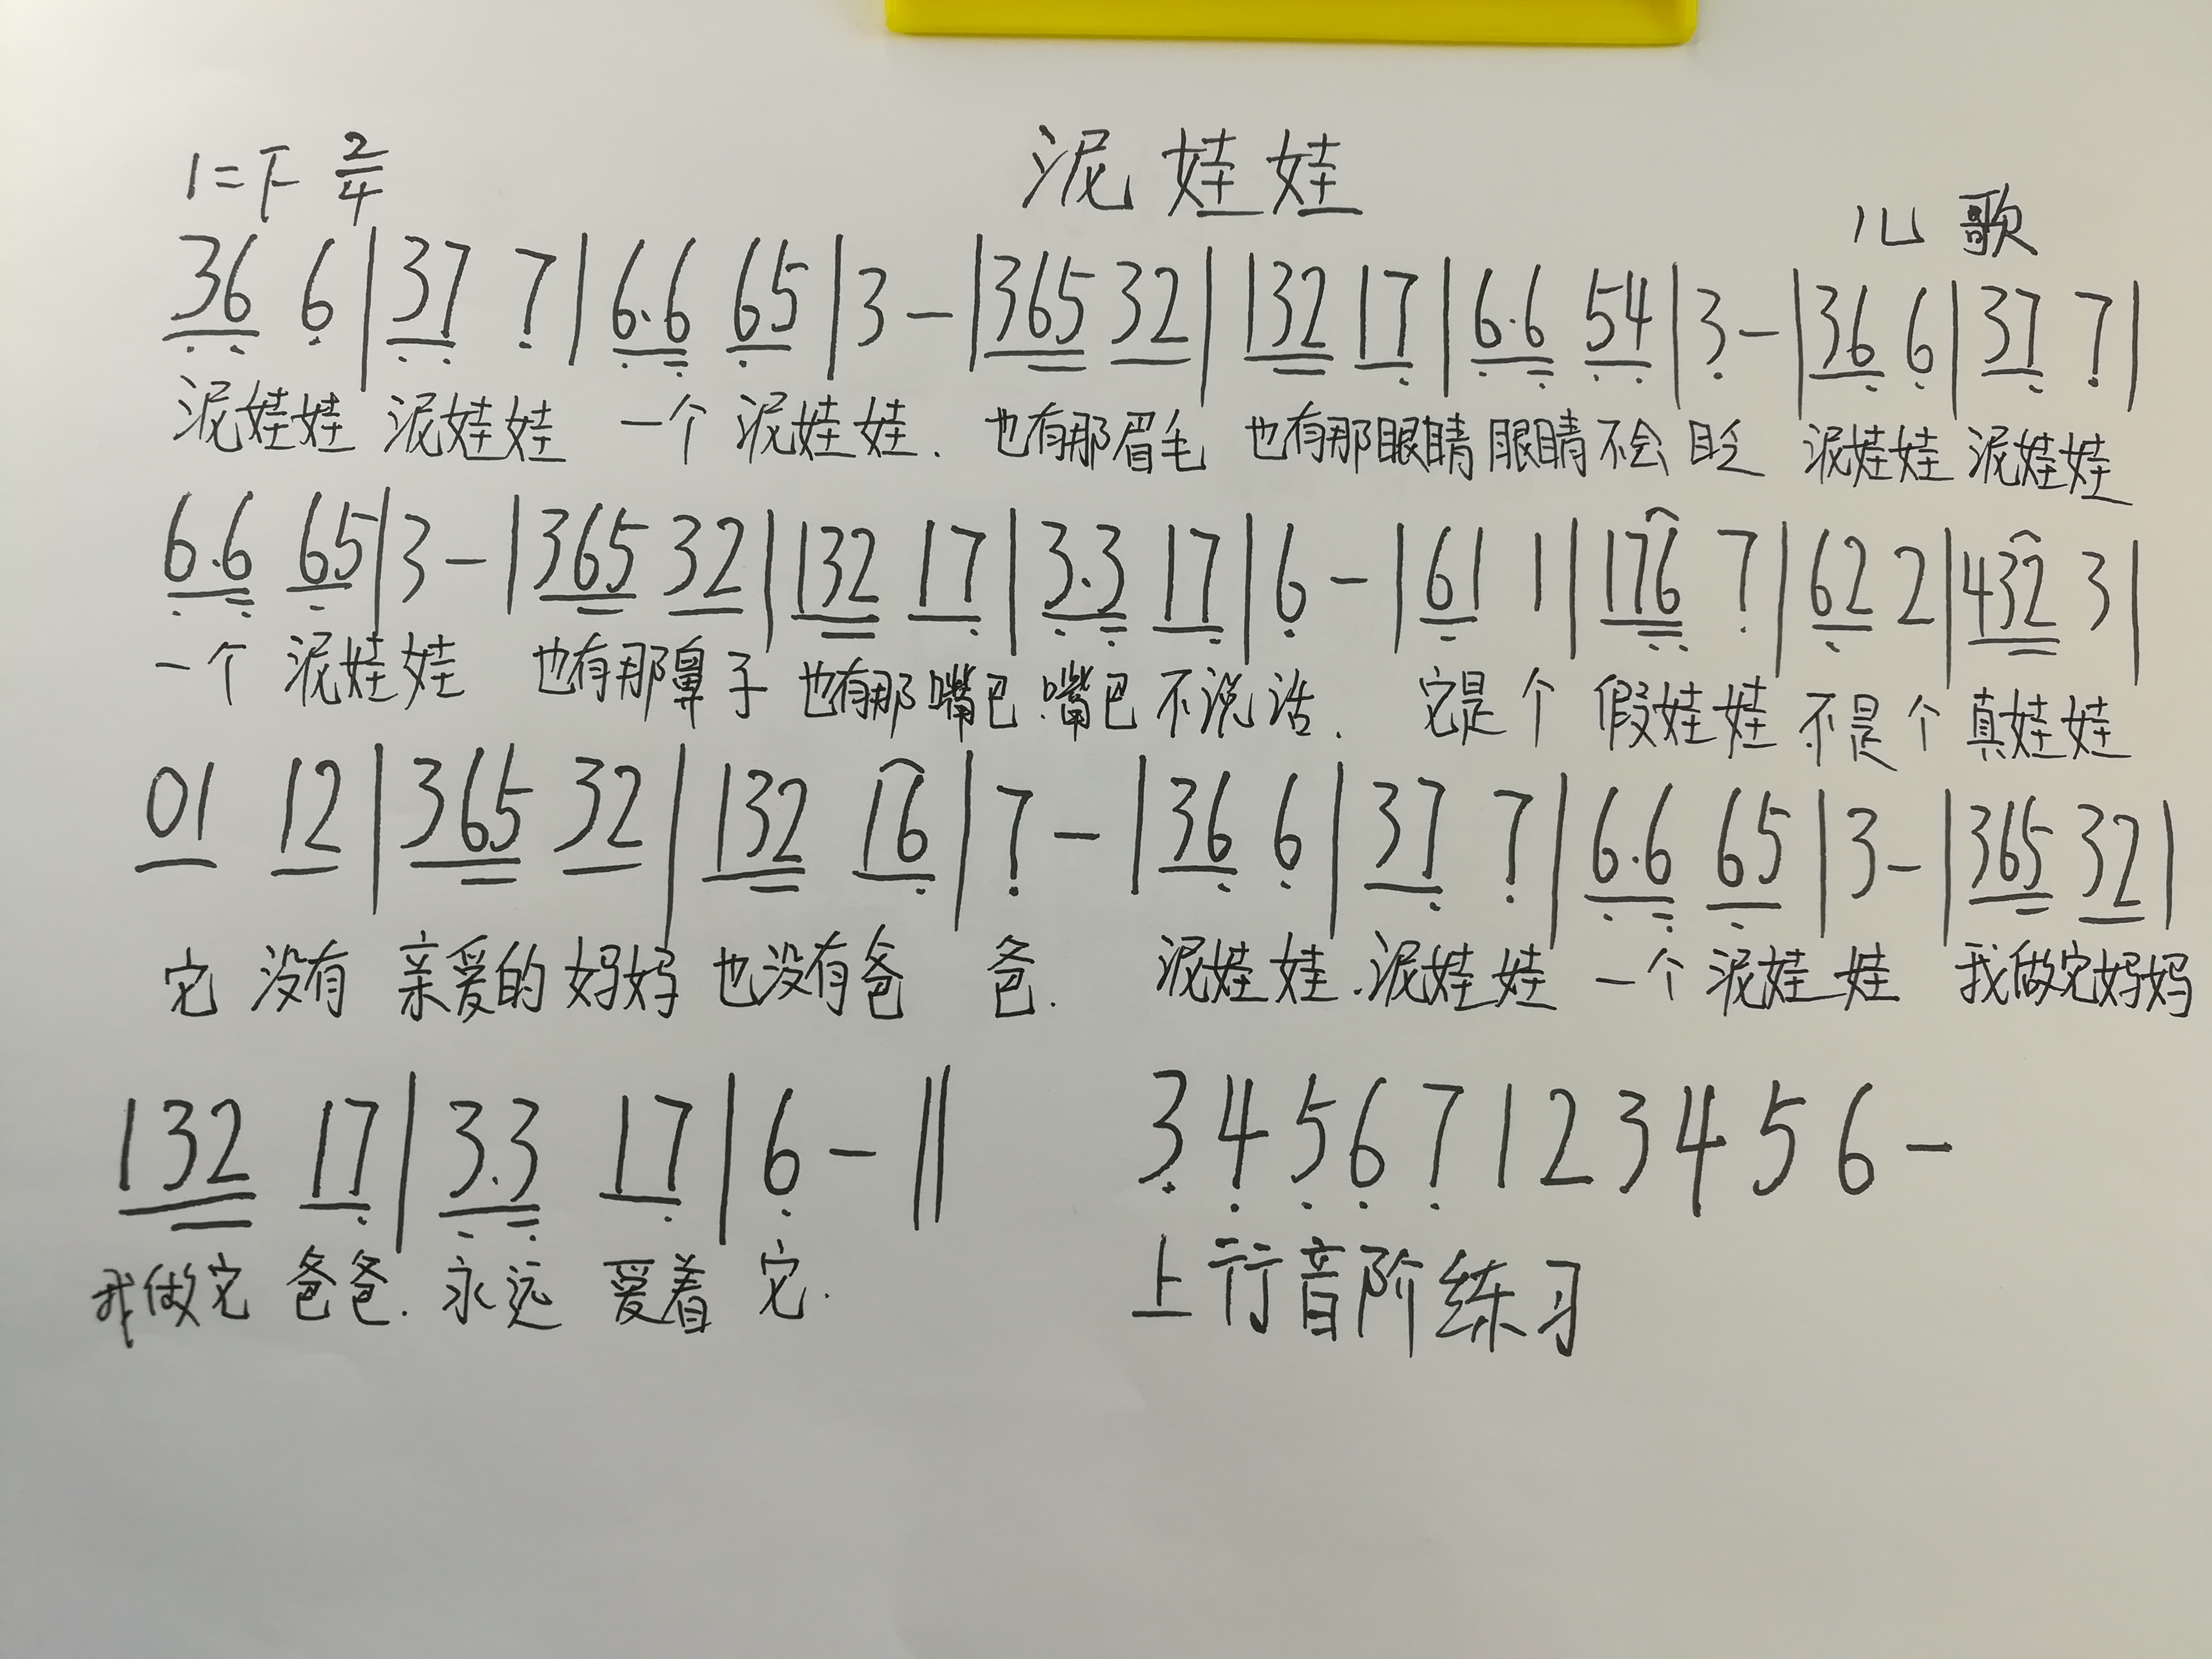 泥娃娃
1=F 2/4
儿歌
36 6|37 7|6.6 65|3-|365 32|132 17|6.6 54|3-|36 6|37 7|
泥娃娃 泥娃娃 一个 泥娃娃. 也有那眉毛 也有那眼睛 眼睛不会 眨 泥娃娃 泥娃娃
6.6 65|3-|365 32|132 17|3.3 17|6-|61 1|176 7|62 2|432 3|
一个 泥娃娃 也有那鼻子 也有那嘴巴.嘴巴 不说话. 它是个 假娃娃 不是个 真娃娃
01 12|365 32|132 16|7-|36 6|37 7|6.6 65|3-|365 32|
它 没有 亲爱的 妈妈 也没有爸 爸. 泥娃娃.泥娃娃 一个 泥娃娃 我做它妈妈
132 17|3.3 17|6-‖ 3 4 5 6 7 1 2 3 4 5 6 -
我做它 爸爸. 永远 爱着 它. 上行音阶练习